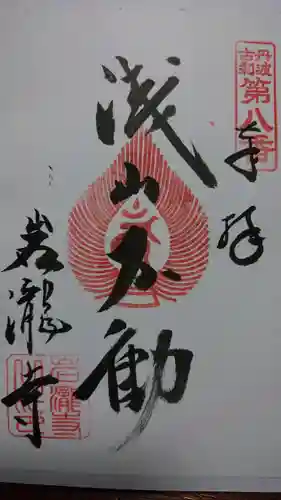 丹波
古刹
第八番
奉拝
浅山不動
岩瀧寺